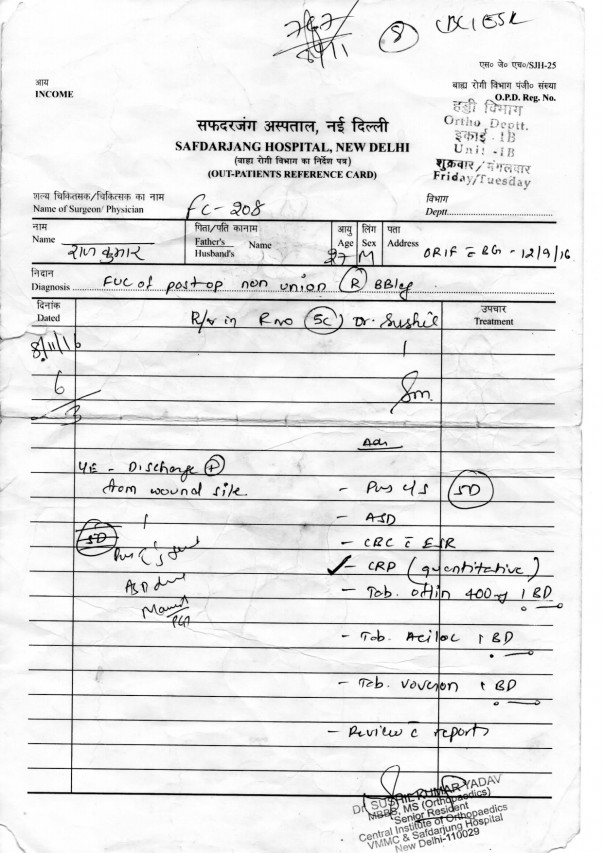 8 CBC/ESR
एस० जे० एच०/SJH-25
आय
INCOME
बाह्य रोगी विभाग पंजी० संख्या
O.P.D. Reg. No.
हड्डी विभाग
Ortho Deptt.
इकाई -IB
Unit -IB
शुक्रवार/मंगलवार
Friday/Tuesday
सफदरजंग अस्पताल, नई दिल्ली
SAFDARJANG HOSPITAL, NEW DELHI
(बाह्य रोगी विभाग का निर्देश पत्र)
(OUT-PATIENTS REFERENCE CARD)
शल्य चिकित्सक/चिकित्सक का नाम
Name of Surgeon/ Physician FC-208
विभाग
Deptt.
नाम
Name राज कुमार
पिता/पति कानाम
Father's Name
Husband's
आयु
Age 27
लिंग
Sex M
पता
Address ORIF c BG - 12/9/16
निदान
Diagnosis FUC of post op non union (R) BBleg
दिनांक
Dated
उपचार
Treatment
R/v in R no 5C Dr. Sushil
8/11/16
6
3
Adv
L/E - Discharge +
from wound site.
- Pus c/s SD
- ASD
SD
- CBC c ESR
Pus c/s sent
- CRP (quantitative)
ASD done
- Tab. oflin 400mg 1 BD
- Tab. Aciloc 1 BD
- Tab. Voveron 1 BD
- Review c reports
Dr. SUSHIL KUMAR YADAV
MBBS, MS (Orthopaedics)
Senior Resident
Central Institute of Orthopaedics
VMMC & Safdarjung Hospital
New Delhi-110029